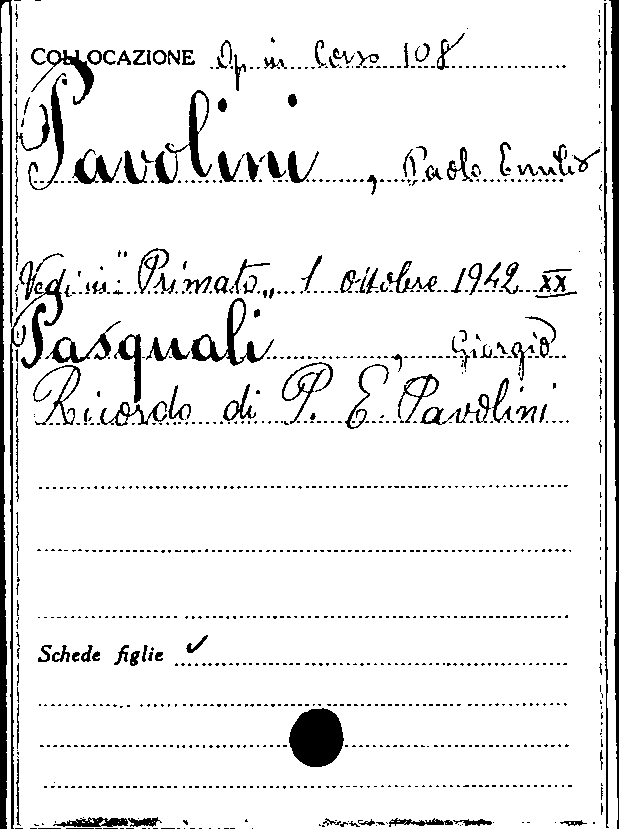 COLLOCAZIONE Op in Corso 108
Pavolini, Paolo Emilio
Vedi in: "Primato„ 1 ottobre 1942 XX
Pasquali, Giorgio
Ricordo di P. E. Pavolini
Schede figlie ✓